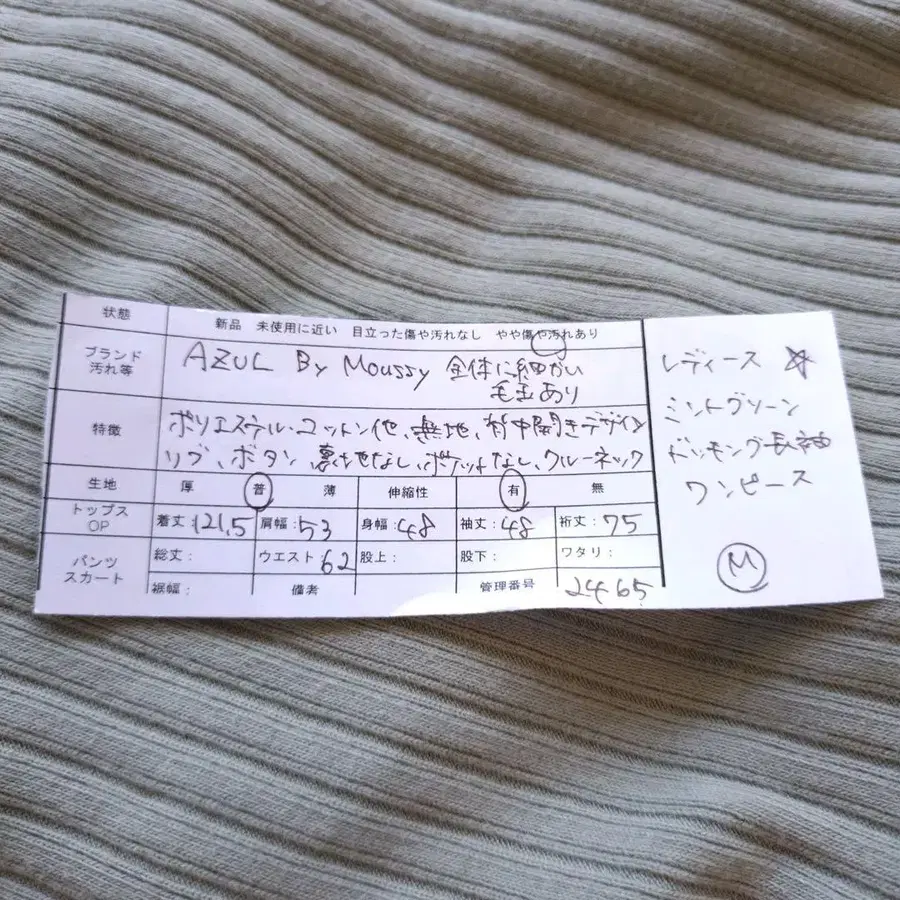 状態 新品 未使用に近い 目立った傷や汚れなし やや傷や汚れあり
ブランド 汚れ等 AZUL By Moussy 全体に細かい
毛玉あり
特徴 ポリエステル・コットン他、無地、背中開きデザイン
リブ、ボタン、裏地なし、ポケットなし、クルーネック
生地 厚 普 薄 伸縮性 有 無
トップス OP 着丈:121,5 肩幅:53 身幅:48 袖丈:48 裄丈:75
パンツ スカート 総丈: ウエスト62 股上: 股下: ワタリ:
裾幅: 備考 管理番号 2465
レディース ☆
ミントグリーン
ドッキング長袖
ワンピース
M